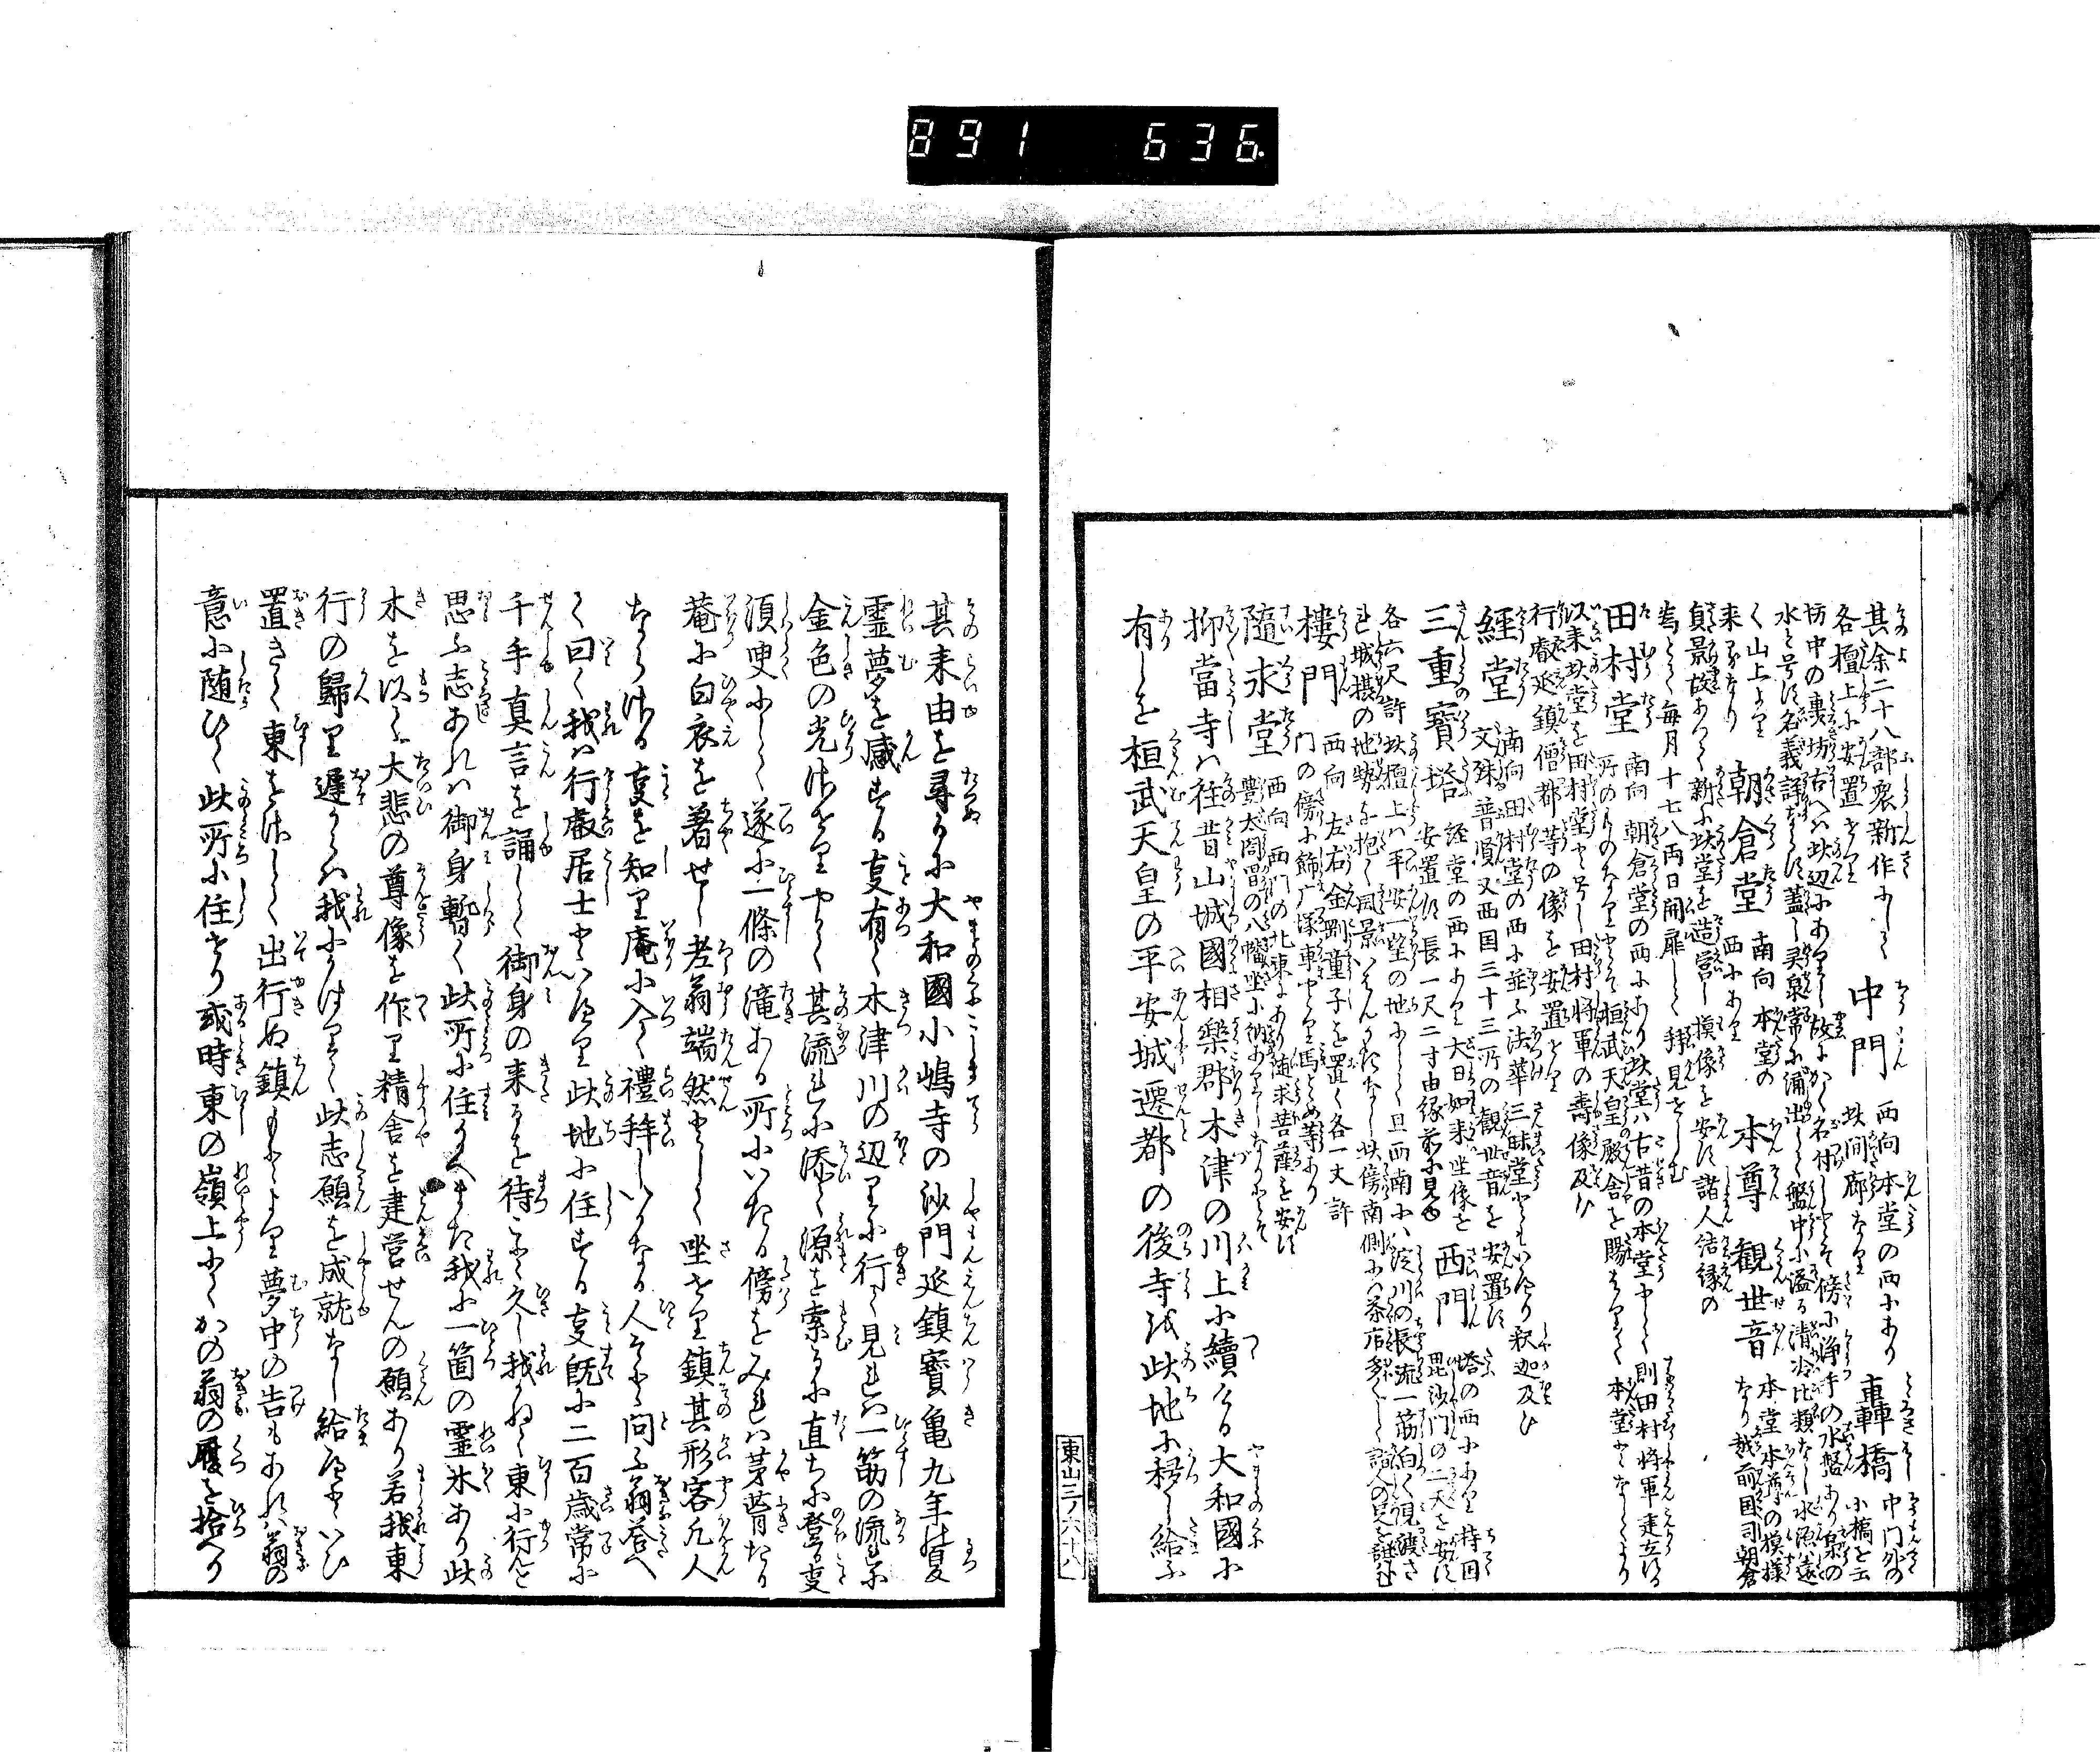 891 636
其余二十八部衆新作にして
各壇上に安置せり
中門
西向本堂の西にあり
此間廊なり
轟橋
中門外の
小橋を云
坊中の裏坊古へは此辺にありし故にかく名付しとぞ傍に浄手の水盤あり梟の
水と号す名義詳ならず蓋し霊泉常に涌出して盤中に溢る清冷比類なし水源遠
く山上より
来るなり
朝倉堂
南向本堂の
西にあり
本尊観世音
本堂本尊の模様
なり越前国司朝倉
貞景故あつて新に此堂を造営し模像を安ず諸人結縁の
為とて毎月十七八両日開扉して拝見せしむ
田村堂
南向朝倉堂の西にあり此堂ハ古昔の本堂にして則田村将軍建立する
所のものなりとぞ桓武天皇の殿舎を賜はりて本堂となししより
以来此堂を田村堂と号し田村将軍の壽像及ひ
行叡延鎮僧都等の像を安置せり
経堂
南向田村堂の西に並ふ法華三昧堂ともいへり釈迦及ひ
文殊普賢又西国三十三所の観世音を安置す
三重寳塔
経堂の西にあり大日如来坐像を
安置す長一尺二寸由縁前に見ゆ
西門
塔の西にあり持国
毘沙門の二天を安ず
各六尺許此壇上ハ平安一望の地にして且西南にハ淀川の長流一筋白く見渡さ
れ城摂の地勢を抱く風景いはんかたなし此傍南側にハ茶店多くして詣人の足を休む
樓門
西向左右金剛童子を置く各一丈許
門の傍に飾广塚車やどり馬とゞめ等あり
隨求堂
西向西門の北東にあり随求菩薩を安ず
豊太閤畄の八幡坐に納ありしなりとぞ
抑當寺ハ往昔山城國相樂郡木津の川上に續ける大和國に
有しを桓武天皇の平安城遷都の後寺を此地に移し給ふ
東山三ノ六十八
其来由を尋るに大和國小嶋寺の沙門延鎮寳亀九年の夏
霊夢を感ずる事有て木津川の辺りに行て見れハ一筋の流れに
金色の光させりやがて其流れに添て源を索るに直ちに登る事
須臾にして遂に一條の滝ある所にいたる傍をみれハ茅葺たる
菴に白衣を著せし老翁端然として坐せり鎮其形容凡人
ならざる事を知り庵に入て禮拝しいかなる人ぞと問ふ翁答へ
て曰く我ハ行叡居士といへり此地に住する事既に二百歳常に
千手真言を誦して御身の来るを待こと久し我かねて東に行んと
思ふ志あれハ御身暫く此所に住るへしまた我に一箇の霊木あり此
木を以て大悲の尊像を作り精舎を建営せんの願あり若我東
行の歸り遅からハ我にかはりて此志願を成就なし給へといひ
置きて東をさして出行ぬ鎮もとより夢中の告もあれハ翁の
意に随ひて此所に住せり或時東の嶺上にてかの翁の履を拾へり